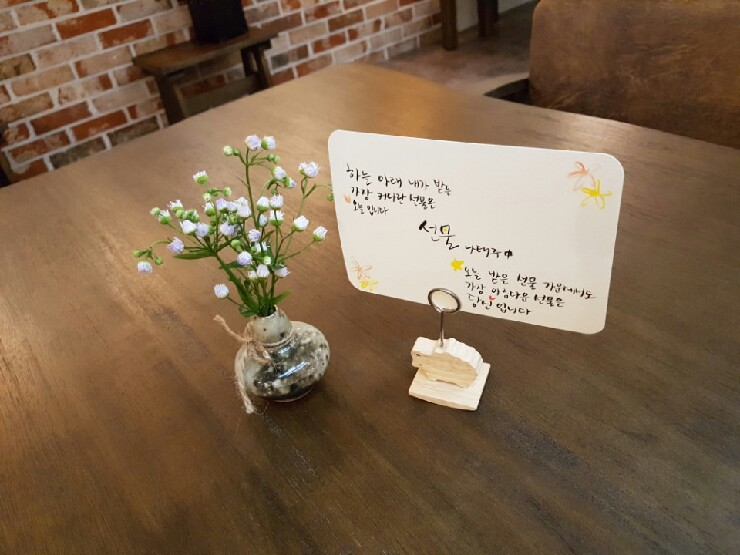 하늘 아래 내가 받은
가장 커다란 선물은
오늘 입니다
선물 나태주 中
오늘 받은 선물 가운데서도
가장 아름다운 선물은
당신 입니다